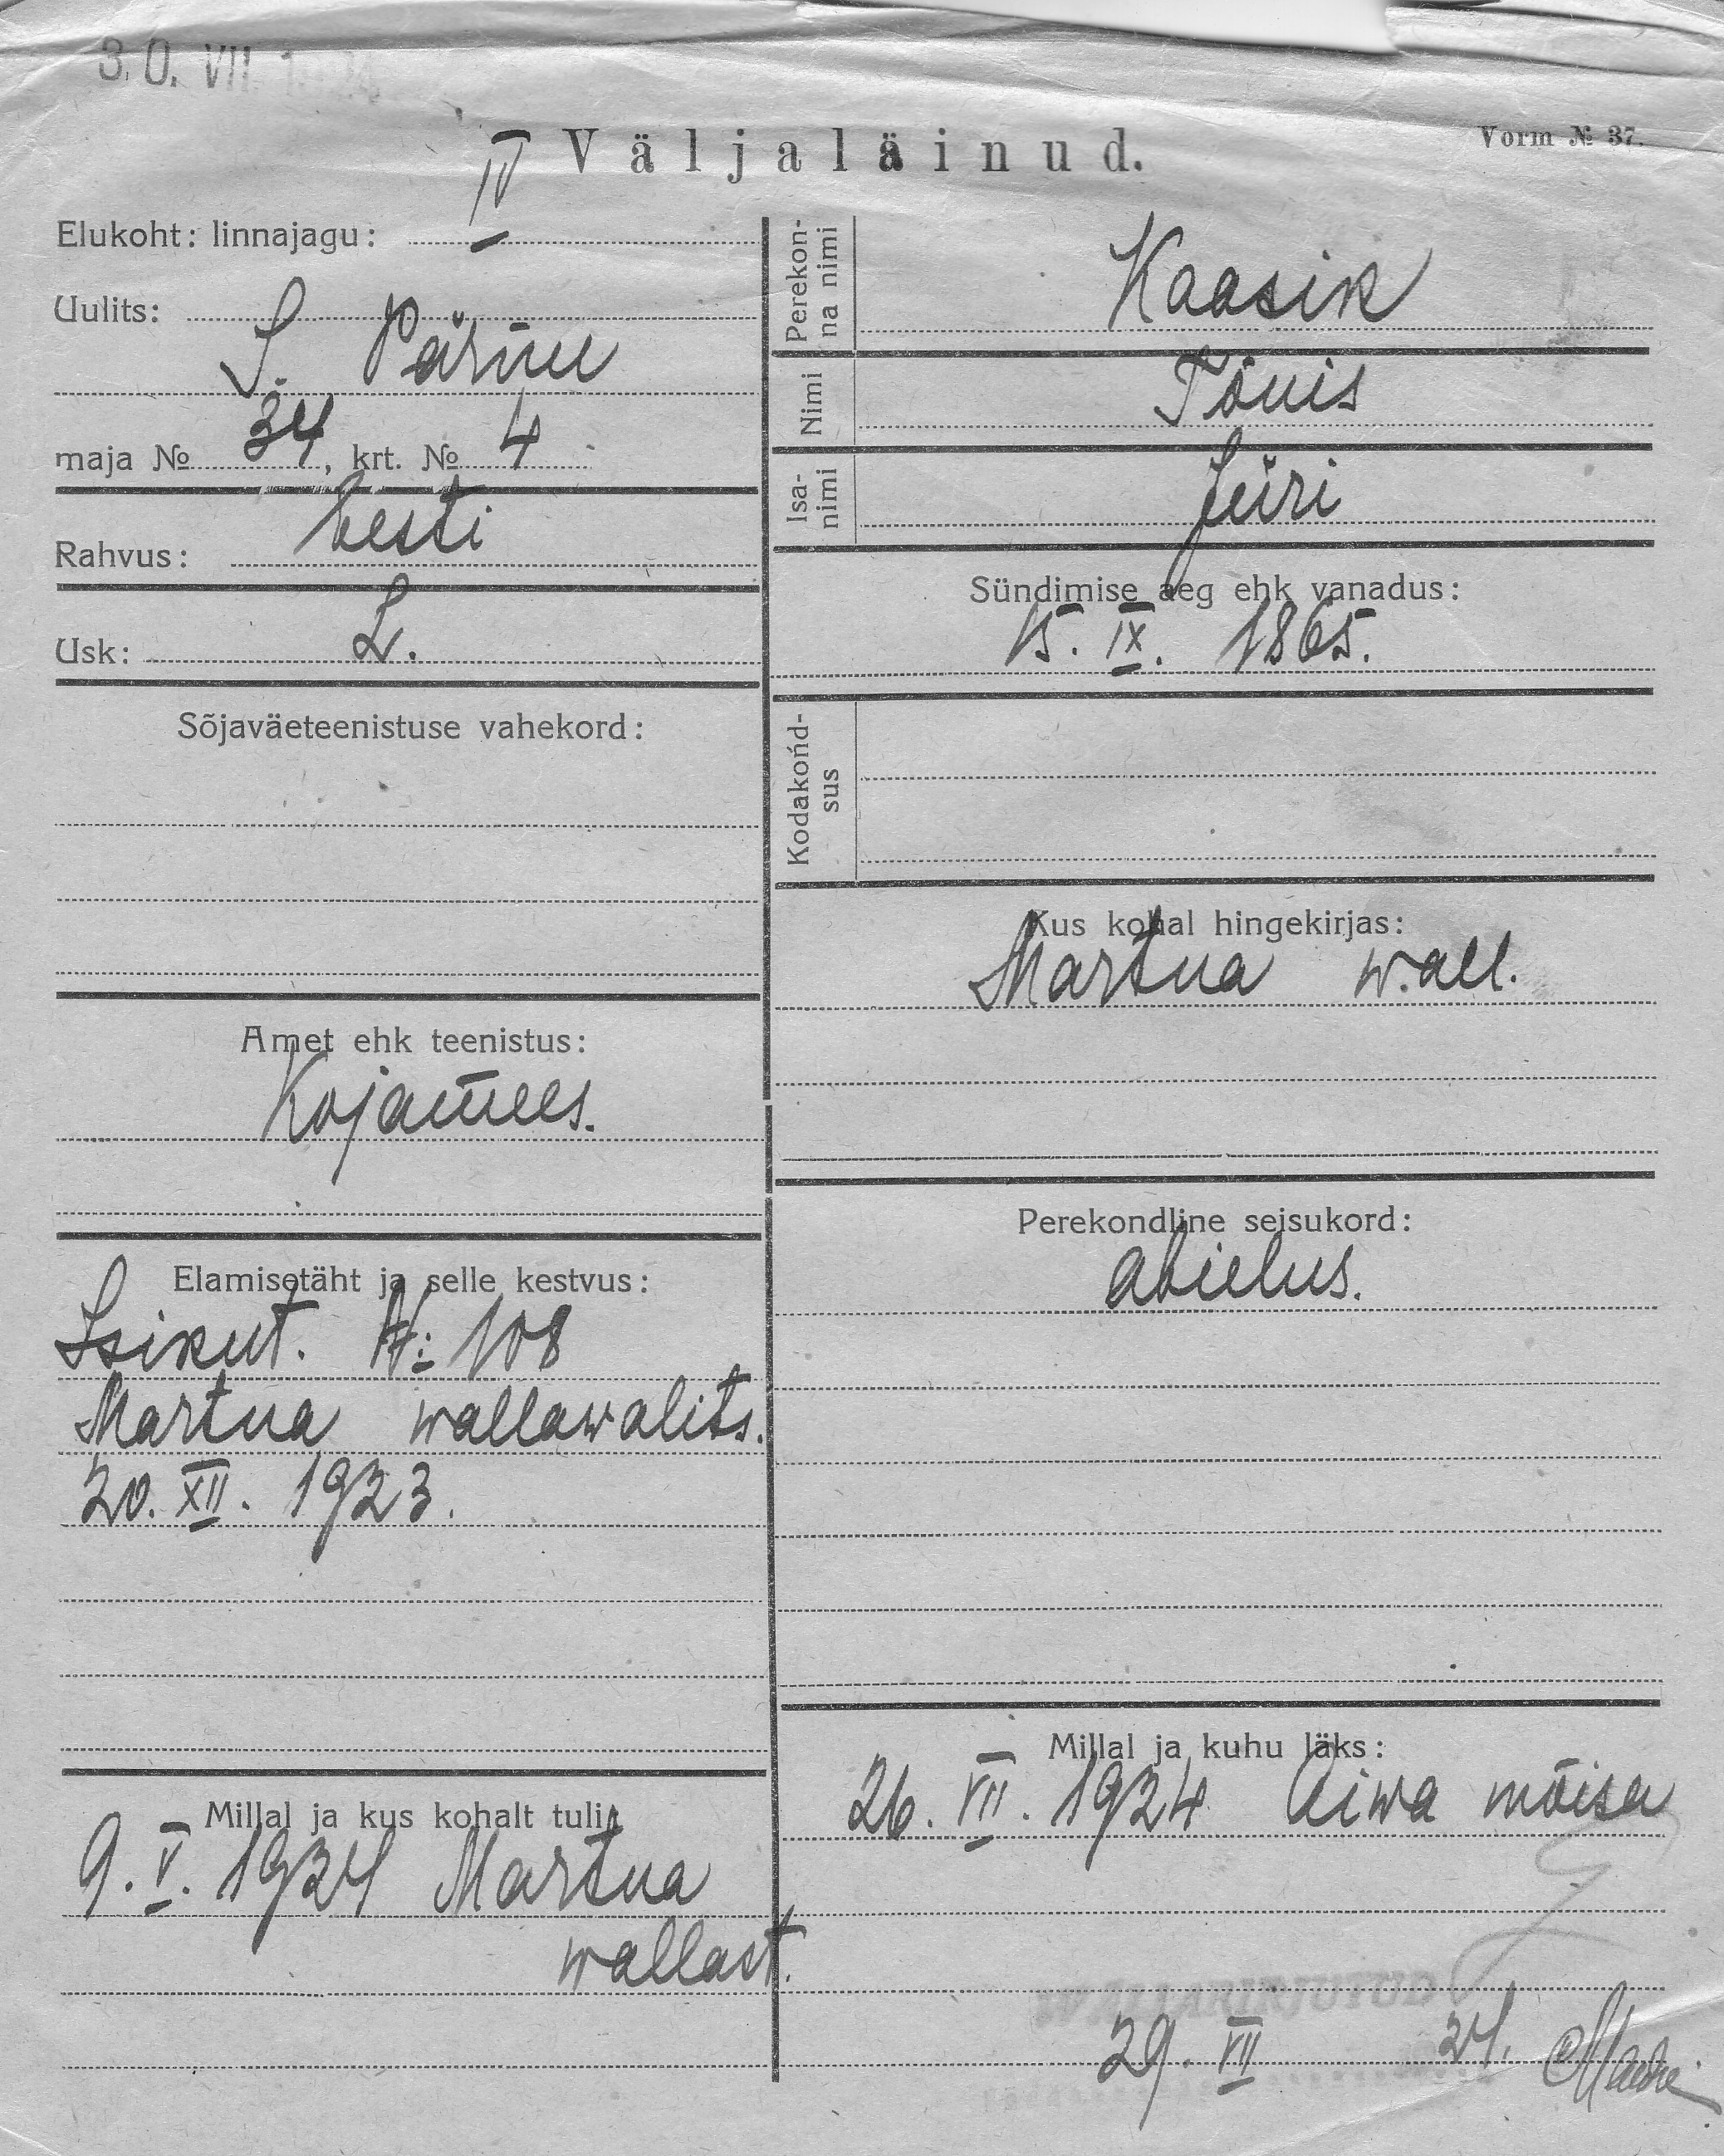 30. VII
Väljaläinud.
Vorm № 37.
Elukoht: linnajagu: IV
Uulits:
S. Pärnu
maja № 34, krt. № 4
Rahvus: Eesti
Usk: L.
Sõjaväeteenistuse vahekord:
Amet ehk teenistus:
Kojamees.
Elamisetäht ja selle kestvus:
Isikut. N: 108
Martna wallawalits.
20. XII. 1923.
Millal ja kus kohalt tuli:
9. V. 1924 Martna
wallast.
Perekon-
na nimi
Kaasik
Nimi
Tõnis
Isa-
nimi
Jüri
Sündimise aeg ehk vanadus:
15. IX. 1865.
Kodakond-
sus
Kus kohal hingekirjas:
Martna wall.
Perekondline seisukord:
abielus.
Millal ja kuhu läks:
26. VII. 1924 Aiwa mõisa
WÄLJAKIRJUTUD
29. VII 24.